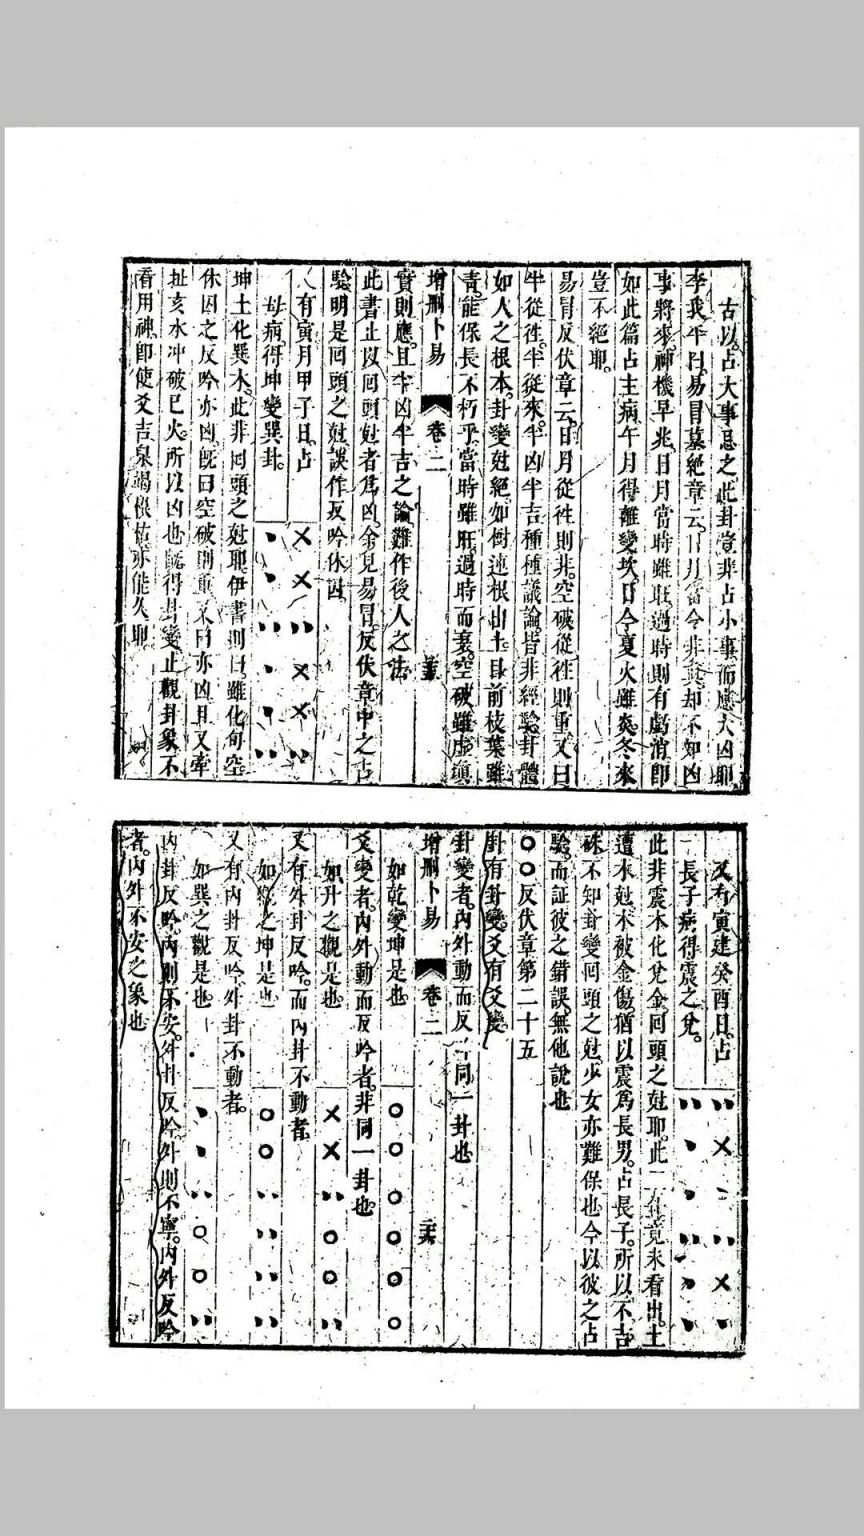 古以占大事忌之此卦豈非占小事而應大凶耶
李我平曰易冒墓絕章云日月當令非真却不知凶
事將來神機早兆日月當時雖旺過時則有虧消即
如此篇占主病午月得離變坎日今夏火雖炎冬來
豈不絕耶
易冒反伏章云日月從徃則非空破從徃則重又曰
半從徃半從來半凶半吉種種議論皆非經驗卦體
如人之根本卦變尅絕如樹連根出土目前枝葉雖
青能保長不朽乎當時雖旺過時而衰空破雖虛塡
增刪卜易 卷二
實則應且半凶半吉之論難作後人之法
此書止以回頭尅者為凶余見易冒反伏章中之占
驗明是回頭之尅誤作反吟休囚
又有寅月甲子日占
母病得坤變巽卦
坤土化巽木此非回頭之尅耶伊書則曰雖化旬空
休囚之反吟亦凶既曰空破則重又曰亦凶且又牽
扯亥水冲破巳火所以凶也既得卦變止觀卦象不
看用神即使爻吉泉竭根枯亦能久耶
又有寅建癸酉日占
長子病得震之兌
此非震木化兌金回頭之尅耶此一卦竟未看出土
遭木尅木被金傷猶以震為長男占長子所以不吉
殊不知卦變回頭之尅少女亦難保也今以彼之占
驗而証彼之錯誤無他說也
〇〇反伏章第二十五
卦有卦變爻有爻變
卦變者內外動而反吟同一卦也
增刪卜易 卷二
如乾變坤是也
爻變者內外動而反吟者非同一卦也
如升之觀是也
又有外卦反吟而內卦不動者
如觀之坤是也
又有內卦反吟外卦不動者
如巽之觀是也
內卦反吟內則不安外卦反吟外則不寧內外反吟
者內外不安之象也